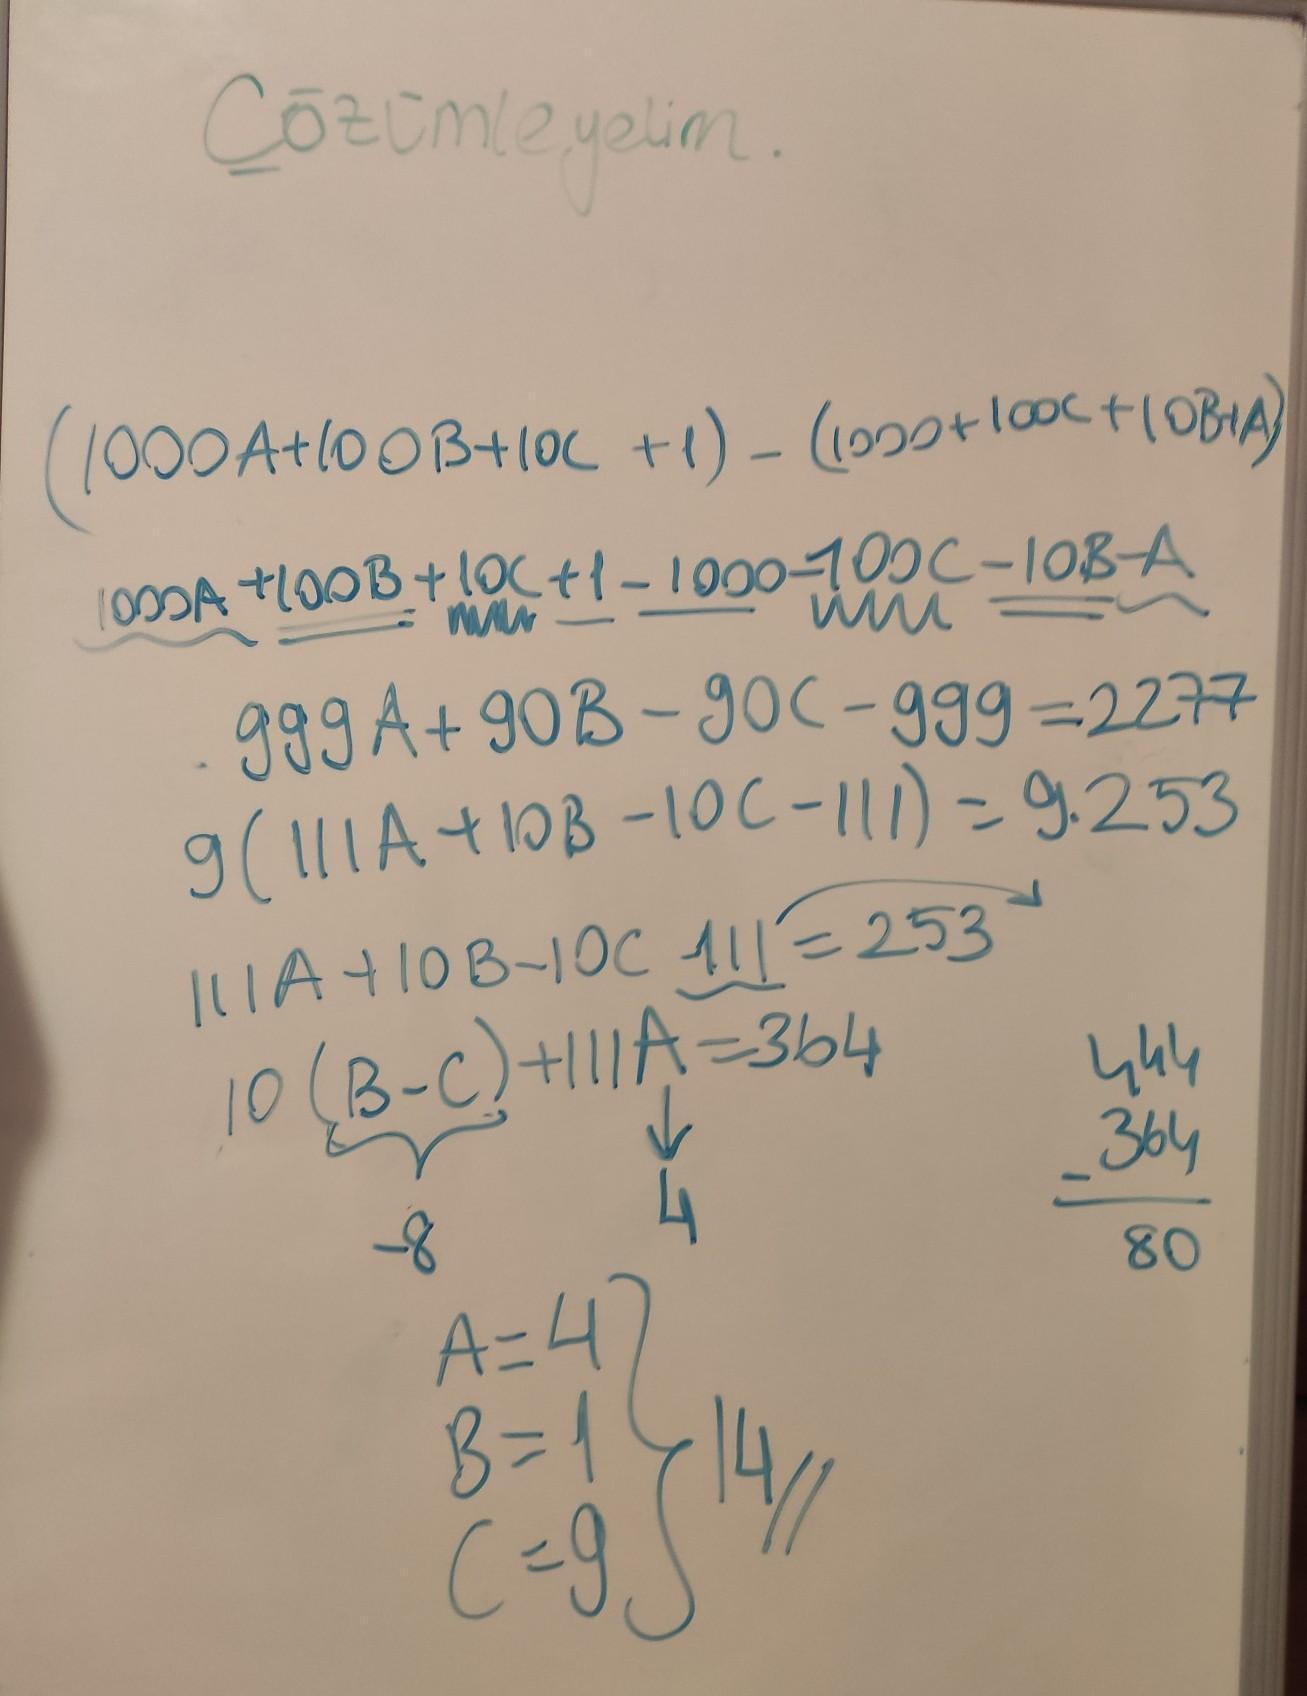 Çözümleyelim.
(1000A+100B+10C +1) - (1000+100C+10B+A)
1000A+100B+10C+1-1000-100C-10B-A
999A+90B-90C-999=2277
9(111A+10B-10C-111)=9.253
111A+10B-10C-111=253
10(B-C)+111A=364
-8
4
444
-364
80
A=4
B=1
C=9
14//